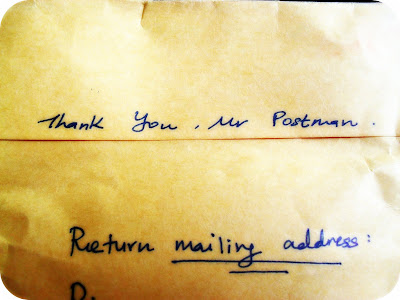 Thank You, Mr Postman.
Return mailing address: